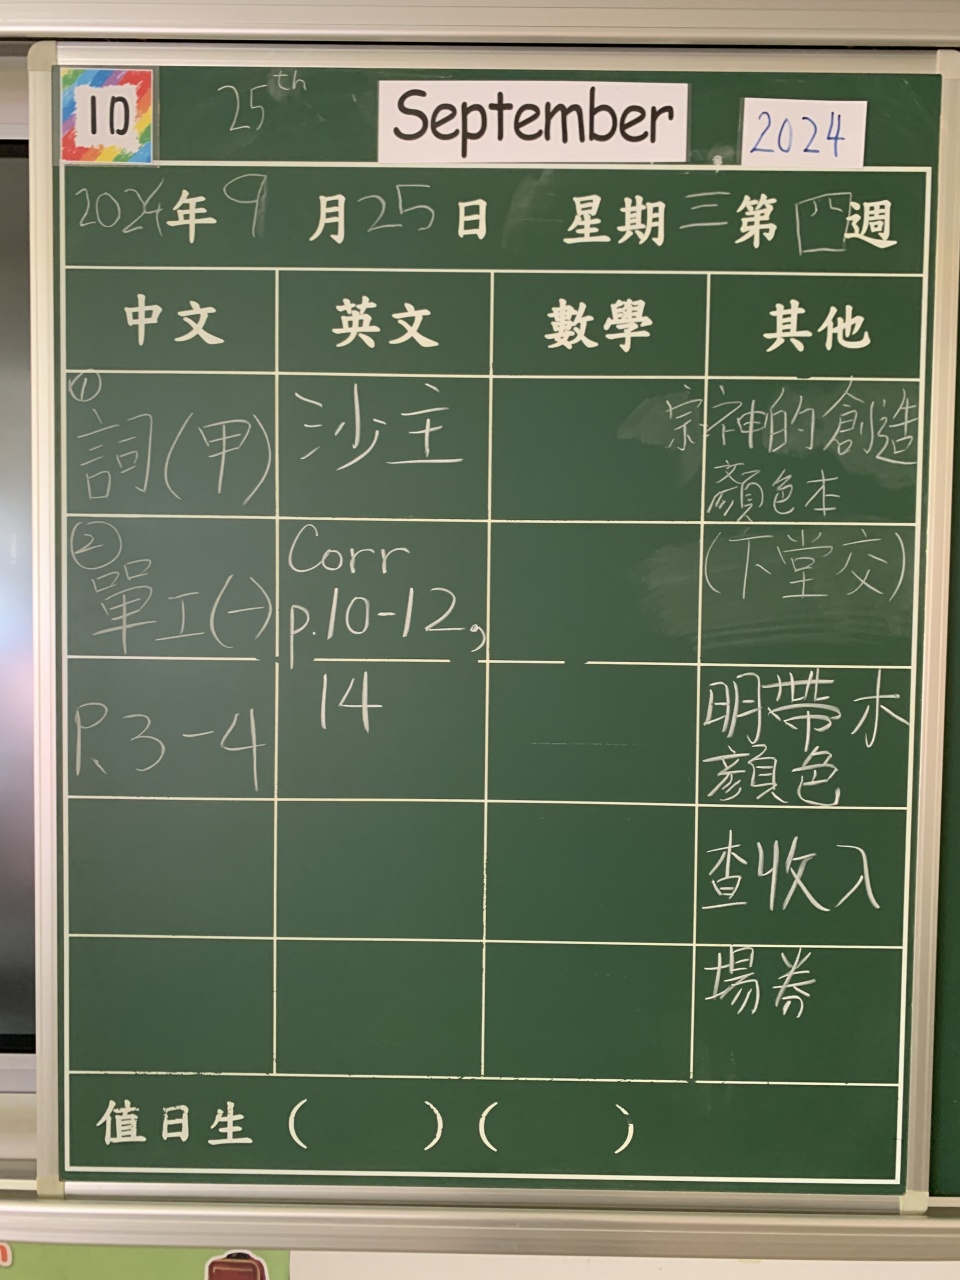 1D 25th September 2024
2024年9月25日 星期三第四週
中文 英文 數學 其他
①
詞(甲)
②
單工(一)
P.3-4
沙主
Corr
p.10-12,
14
宗神的創造
顏色本
(下堂交)
明帶木
顏色
查收入
場券
值日生 ( ) ( )